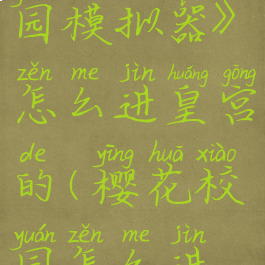 园模拟器》
zěn me jìn huáng gōng
怎么进皇宫
de yīng huā xiào
的(樱花校
yuán zěn me jìn
园怎么进